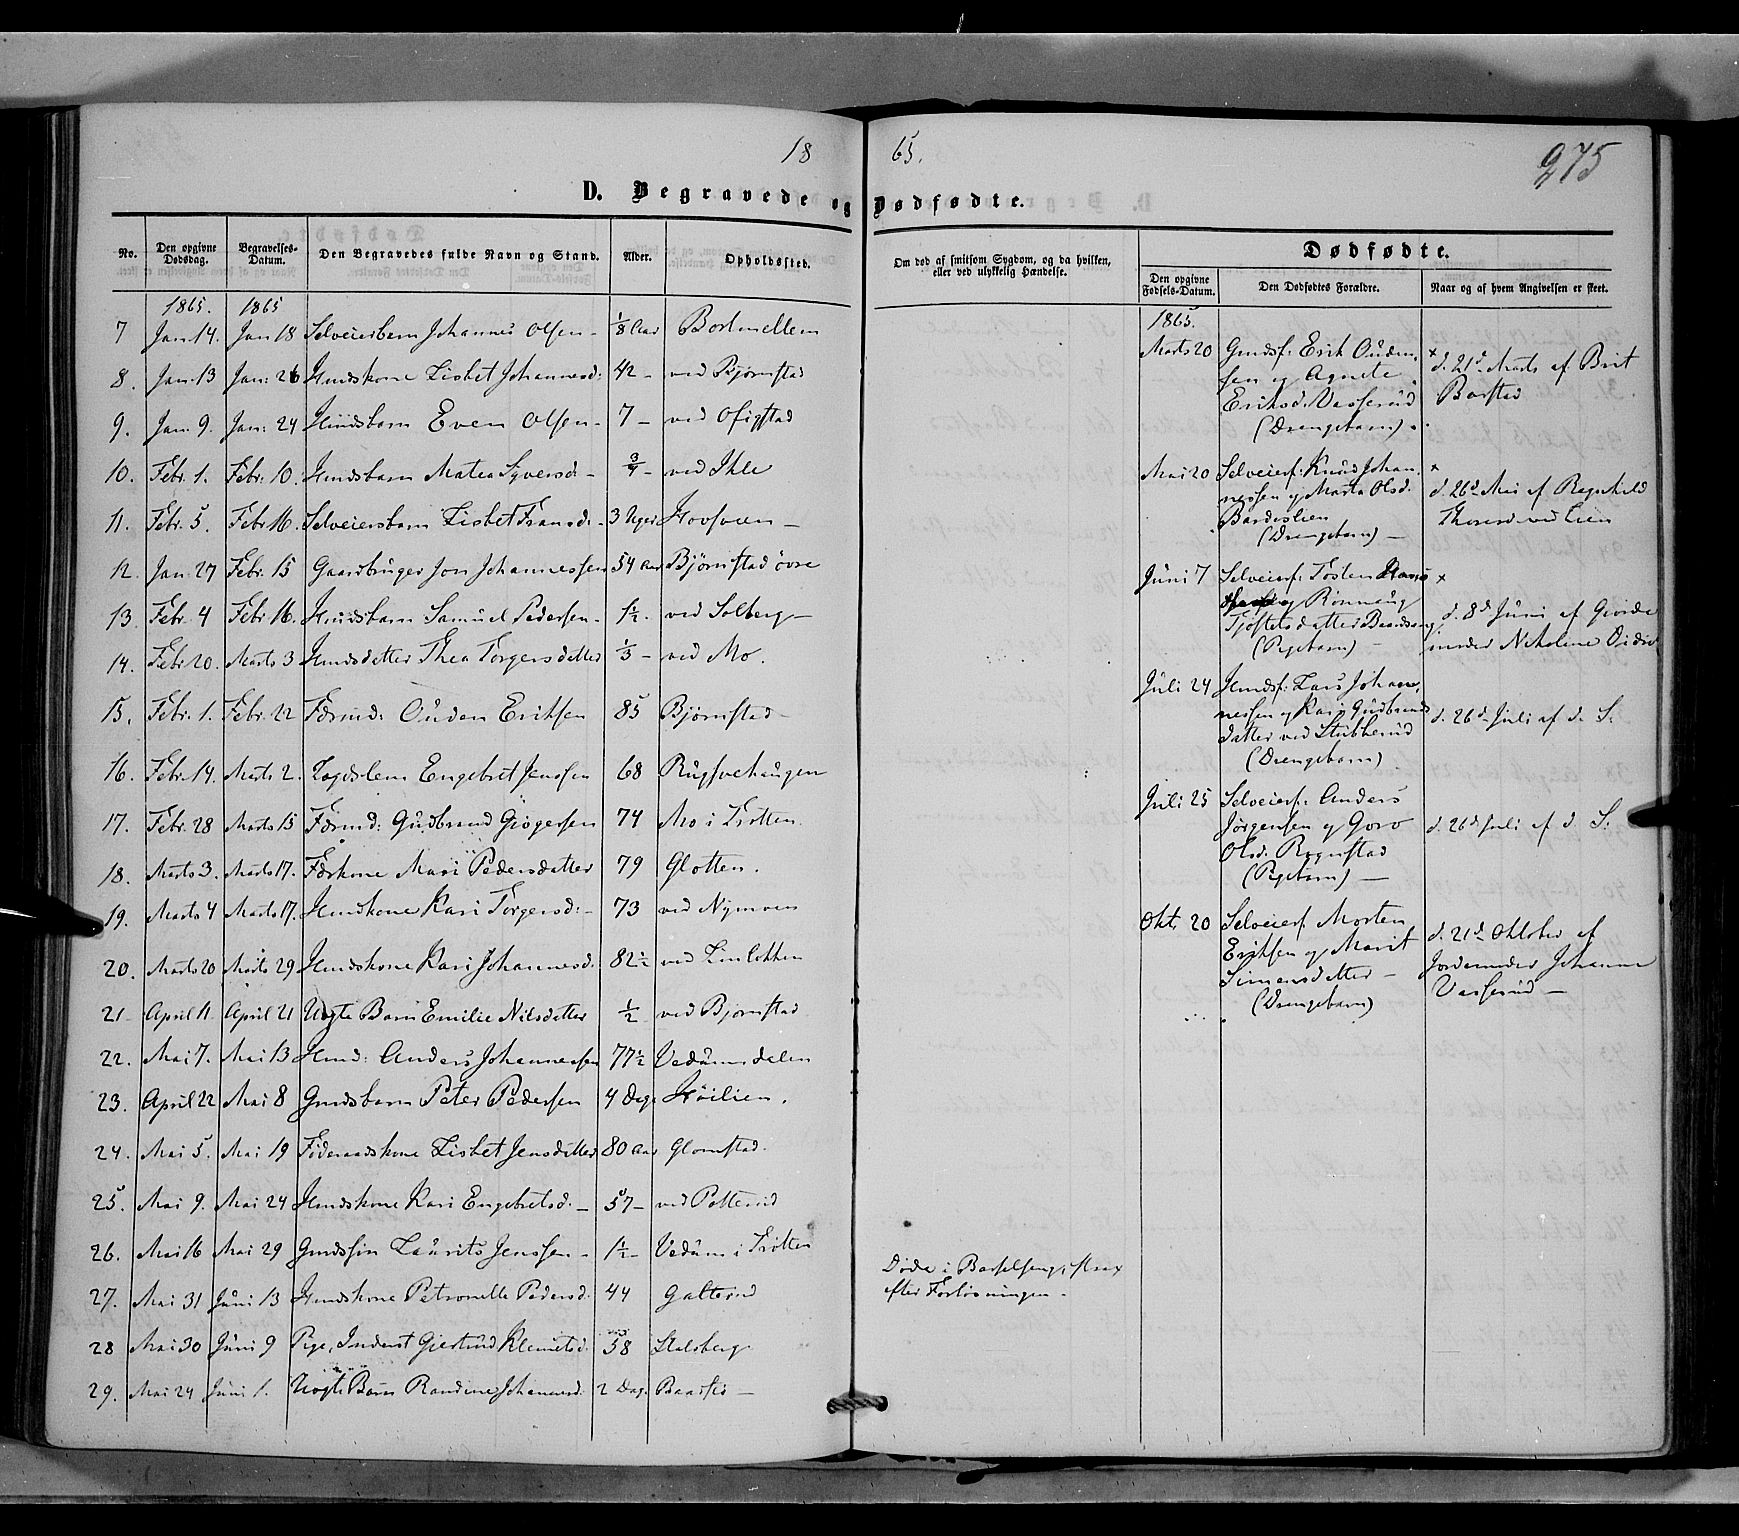 18 65. 275
D. Begravede og Dødfødte.
No. Den opgivne Dødsdag. Begravelses-Datum. Den Begravedes fulde Navn og Stand. Alder. Opholdssted.
Om død af smitsom Sygdom, og da hvilken, eller ved ulykkelig Hændelse.
Dødfødte.
Den opgivne Fødsels-Datum. Den Dødfødtes Forældre. Naar og af hvem Angivelsen er skeet.
1865. 1865
7 Jan 14. Jan 18 Selveierbarn Johannes Olsen - 1/8 Aar
8. Jan 13 Jan: 26 Huuskone Lisbet Johannesd: 42 - ved Bjørnstad
9. Jan. 9. Jan: 24 Huusbarn Even Olsen - 7 - ved
10. Febr. 1. Febr: 10. Huusbarn Matea Syversd - 3/4 - ved Ihle
11. Febr. 5. Febr 16. Selveiersbarn Lisbet Fransd: - 3 Uger Hovsveen -
12. Jan. 27 Febr. 15 Gaardbruger Jon Johannessen 54 Aar Bjørnstad øvre
13. Febr. 4 Febr 16. Huusbarn Samuel Pedersen - 1½ - ved Solberg -
14. Febr 20. Marts 3 Huusdatter Thea Torgersdatter 1/3 - ved Mo.
15. Febr. 1. Febr. 22 Føermd: Ouden Eriksen 85 Bjørnstad -
16. Febr. 14. Marts 2. Lægdslem Engebret Jensen 68
17. Febr. 28 Marts 15 Føermd: Gudbrand 74 Mo i Trøtten.
18. Marts 3. Marts 17. Føerkone Mari Pedersdatter 79 Glotten.
19. Marts 4 Marts 17. Huuskone Kari Torgersd: - 73 ved Nymoen
20. Marts 20 Marts 29 Huuskone Kari Johannesd. 82½ ved Linløkken
21. April 11. April 21 Uægte Barn Emilie Nilsdatter ½ - ved Bjørnstad
22. Mai 7. Mai 13 Huusd: Anders Johannessen 77½ Vedumsdalen
23. April 22 Mai 8 Grndsbarn Peter Pedersen 4 Dage Høilien.
24. Mai 5. Mai 19 Føderaadskone Lisbet Jensdatter 80 Aar Glomstad.
25. Mai 9. Mai 24 Huuskone Kari Engebretsd: - 57 - ved Potterud
26. Mai 16 Mai 29 Laurits Jensen - 1½ - Vedum i Trøtten
27. Mai 31 Juni 13 Huuskone Petronelle Pedersd: 44 Galterud
28 Mai 30 Juni 9 Pige, Inderst Gjertrud Klemetsd: 58 Stalsberg
29. Mai 24 Juni 1. Uægte Barn Randine Johannesd: 2 Dage
Døde i Barselseng, strax
efter Forløsningen -
1865.
Marts 20 Erik Ouden-
sen og Agnete
Eriksd. Vasserud
(Drengebarn) -
d. 21d Marts af Brit
Barstad
Mai 20 Selveierf: Knud Johan-
nessen og Marta Olsd.
(Drengebarn) -
d. 26d Mai af Ragnhild
Thoresd ved Lien
Juni 7 Selveierf: Tosten
og Rønnaug
(Pigebarn) -
d. 8d Juni af Gjorde-
moder Nikoline
Juli 24 Lars Johan-
nessen og Kari Gudbrands
datter ved Stubberud
(Drengebarn)
d. 26d Juli af d. S:
Juli 25 Selveierf: Anders
Jørgensen og Goro
Olsd.
(Pigebarn) -
d. 26d Juli af d. S:
Okt. 20 Selveierf. Morten
Eriksen og Marit
Simensdatter -
(Drengebarn)
d. 21d Oktober af
Jordemoder Johanne
Vasserud -